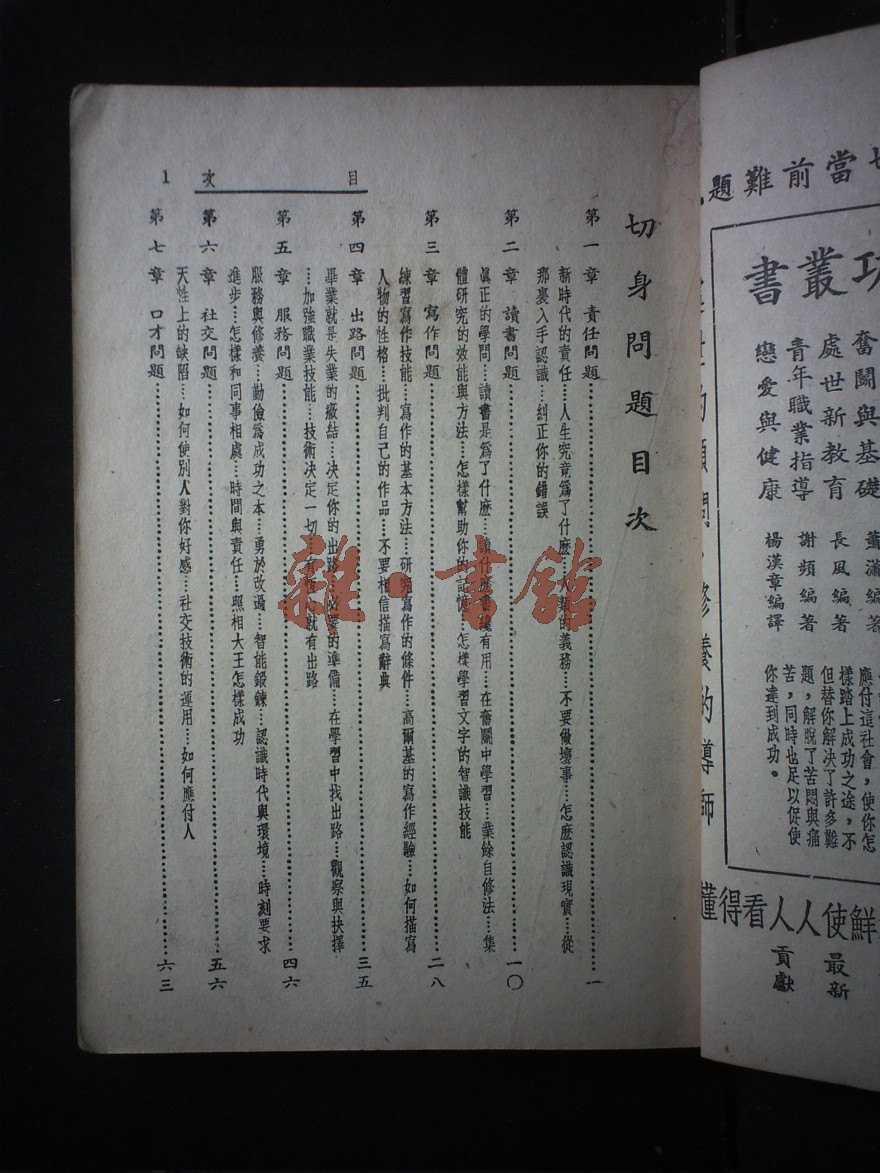 切身問題目次
第一章 責任問題……一
新時代的責任…人生究竟爲了什麽…人類的義務…不要做壞事…怎麽認識現實…從
那裏入手認識…糾正你的錯誤
第二章 讀書問題……一〇
眞正的學問…讀書是爲了什麽…讀什麽書纔有用…在奮鬭中學習…業餘自修法…集
體研究的效能與方法…怎樣幫助你的記憶…怎樣學習文字的智識技能
第三章 寫作問題……二八
練習寫作技能…寫作的基本方法…研究寫作的條件…高爾基的寫作經驗…如何描寫
人物的性格…批判自己的作品…不要相信描寫辭典
第四章 出路問題……三五
畢業就是失業的癥結…決定你的出路…必要的準備…在學習中找出路…觀察與抉擇
…加強職業技能…技術决定一切…有信心就有出路
第五章 服務問題……四六
服務與修養…勤儉爲成功之本…勇於改過…智能鍛鍊…認識時代與環境…時刻要求
進步…怎樣和同事相處…時間與責任…照相大王怎樣成功
第六章 社交問題……五六
天性上的缺陷…如何使別人對你好感…社交技術的運用…如何應付人
第七章 口才問題……六三
目次 1
雜·書館
當前難題
功叢書
奮鬭與基礎 蕭瀟編著
處世新教育 長風編著
青年職業指導 謝頻編著
戀愛與健康 楊漢章編譯
應付這社會，使你怎
樣踏上成功之途，不
但替你解決了許多難
題，解脫了苦悶與痛
苦，同時也足以促使
你達到成功。
修養的導師
鮮使人人看得懂
最新
貢獻